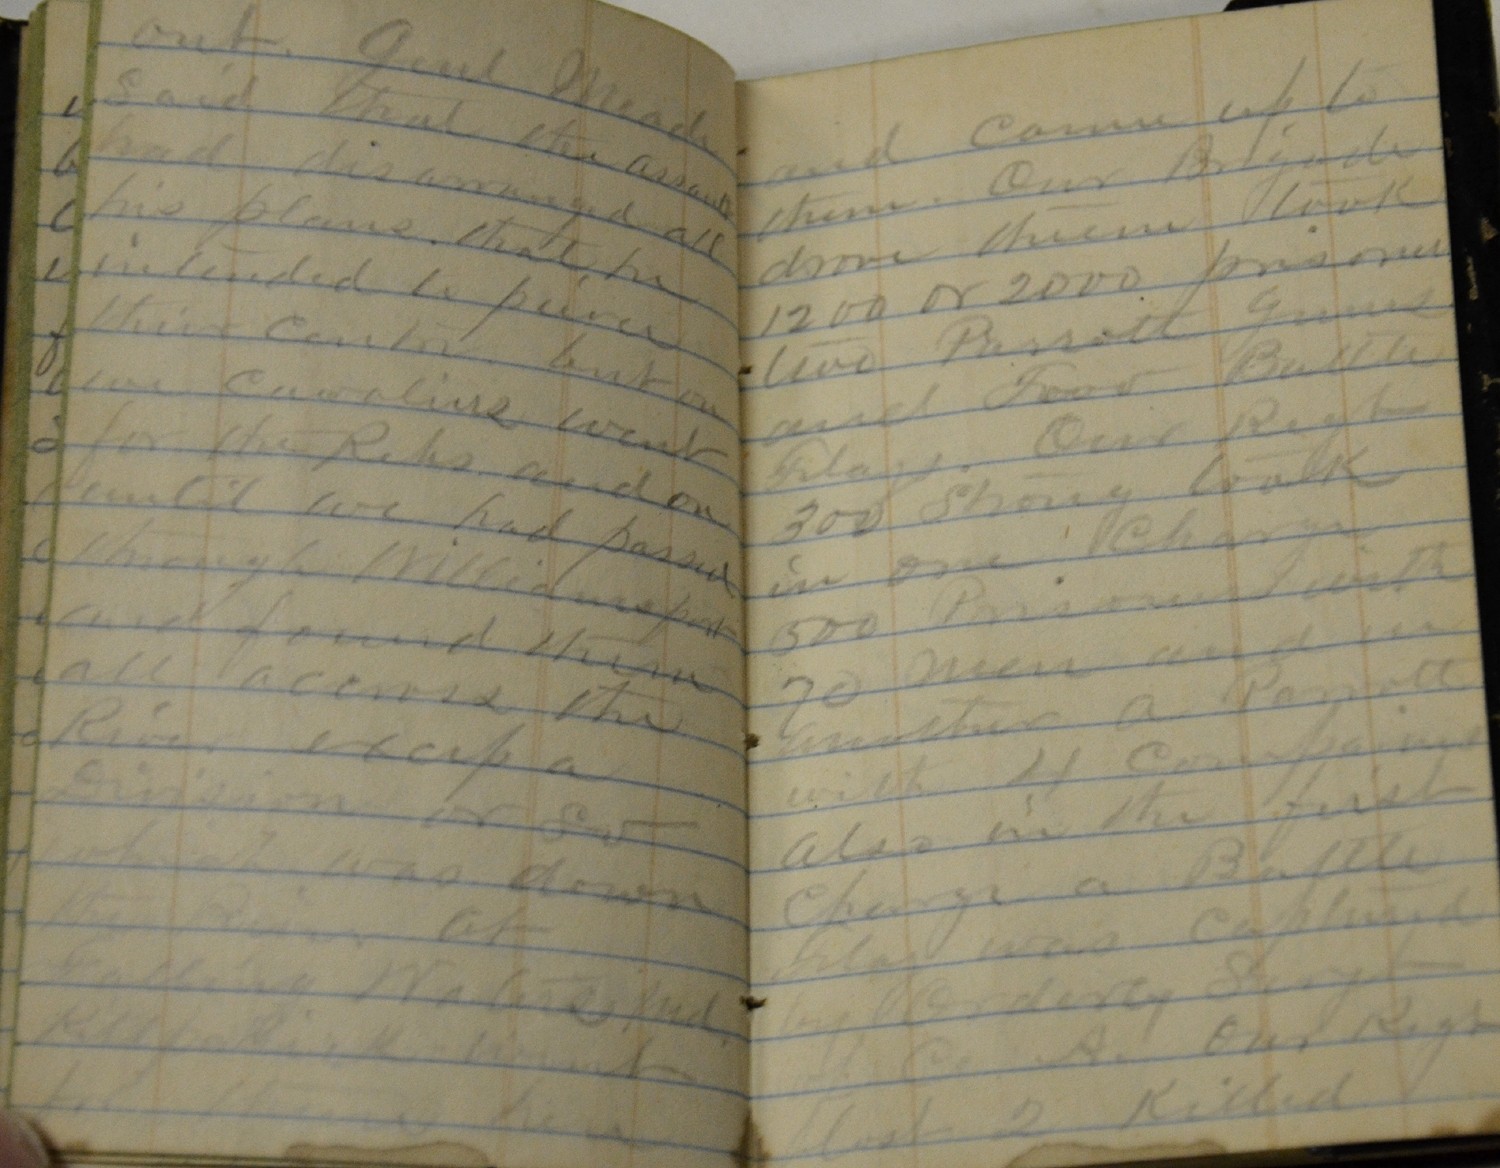 out. Genl Meade
said that the assault
had disarranged all
his plans. that he
intended to peirce
their Center but on
we cavalirs went
for the Rebs and on
until we had passed
through Williamsport
and found them
all accross the
River excep a
Division or so
which was down
the River at
Falling Waters and
Killpatrick went
for them
and came up to
them. Our Brigade
drove them took
1200 or 2000 prisoners
two Parrott Guns
and Four Battle
Flags. Our Regt
300 Strong took
in one Charge
500 Prisoners with
70 Men and in
another a Parrott
with 4 Companies
also in the first
Charge a Battle
Flag was Captured
by Orderly Sergt
of Co. A. Our Regt
lost 2 Killed